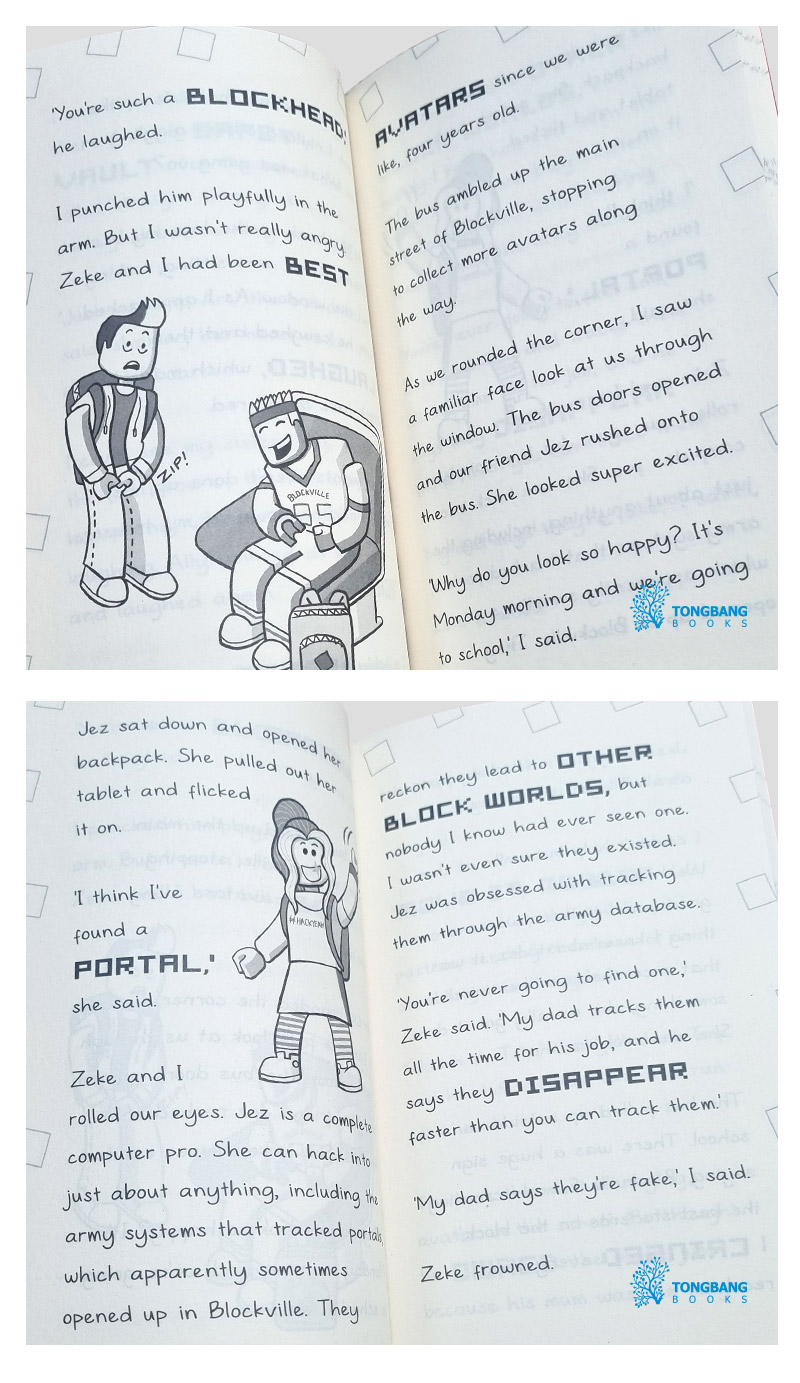 'You're such a BLOCKHEAD,'
he laughed.
I punched him playfully in the
arm. But I wasn't really angry.
Zeke and I had been BEST
ZIP!
BLOCKVILLE
AVATARS since we were
like, four years old.
The bus ambled up the main
street of Blockville, stopping
to collect more avatars along
the way.
As we rounded the corner, I saw
a familiar face look at us through
the window. The bus doors opened
and our friend Jez rushed onto
the bus. She looked super excited.
'Why do you look so happy? It's
Monday morning and we're going
to school,' I said.
TONGBANG
BOOKS
Jez sat down and opened her
backpack. She pulled out her
tablet and flicked
it on.
'I think I've
found a
PORTAL,'
she said.
#HACKYEAH
Zeke and I
rolled our eyes. Jez is a complete
computer pro. She can hack into
just about anything, including the
army systems that tracked portals,
which apparently sometimes
opened up in Blockville. They
reckon they lead to OTHER
BLOCK WORLDS, but
nobody I know had ever seen one.
I wasn't even sure they existed.
Jez was obsessed with tracking
them through the army database.
'You're never going to find one,'
Zeke said. 'My dad tracks them
all the time for his job, and he
says they DISAPPEAR
faster than you can track them.'
'My dad says they're fake,' I said.
Zeke frowned.
TONGBANG
BOOKS